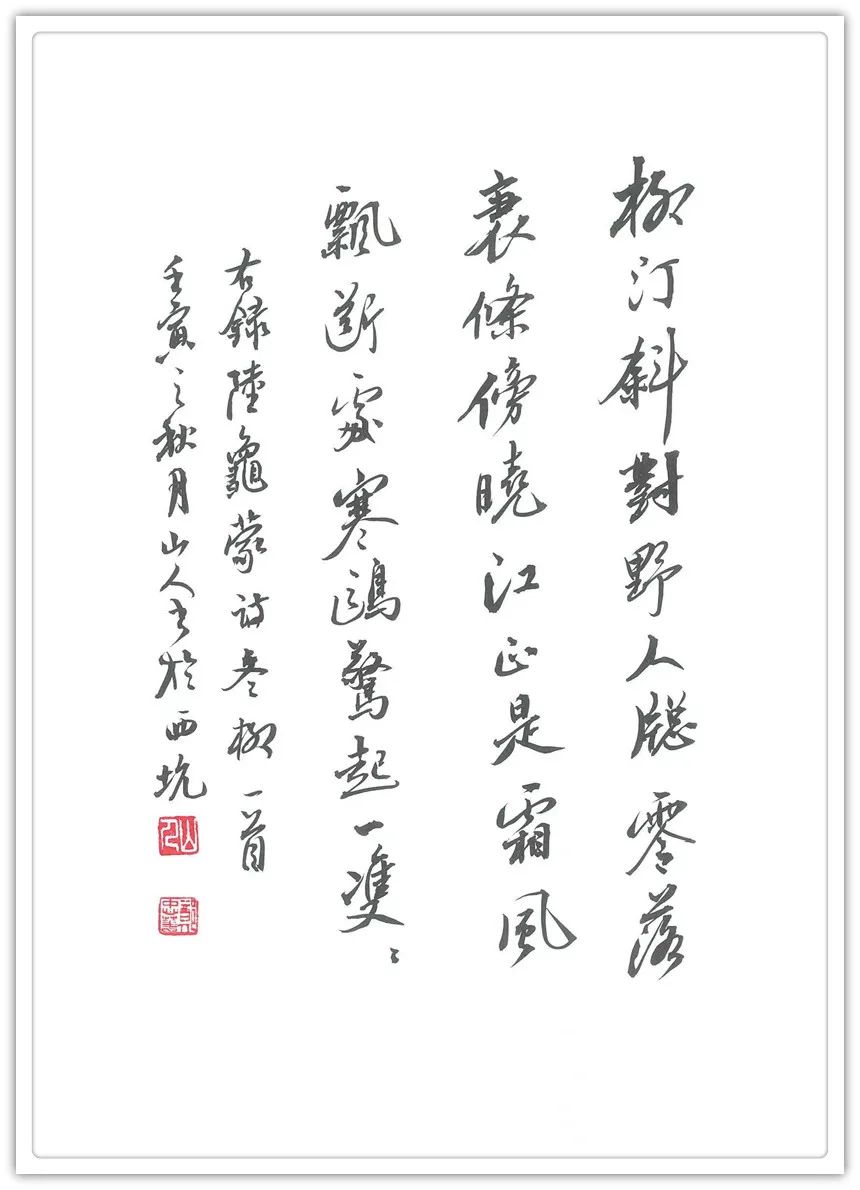 柳汀斜對野人牎零落
衰條傍曉江正是霜風
飄斷處寒鷗驚起一雙〻
右録陸龜蒙詩冬柳一首
壬寅之秋月山人書於西坑
山人